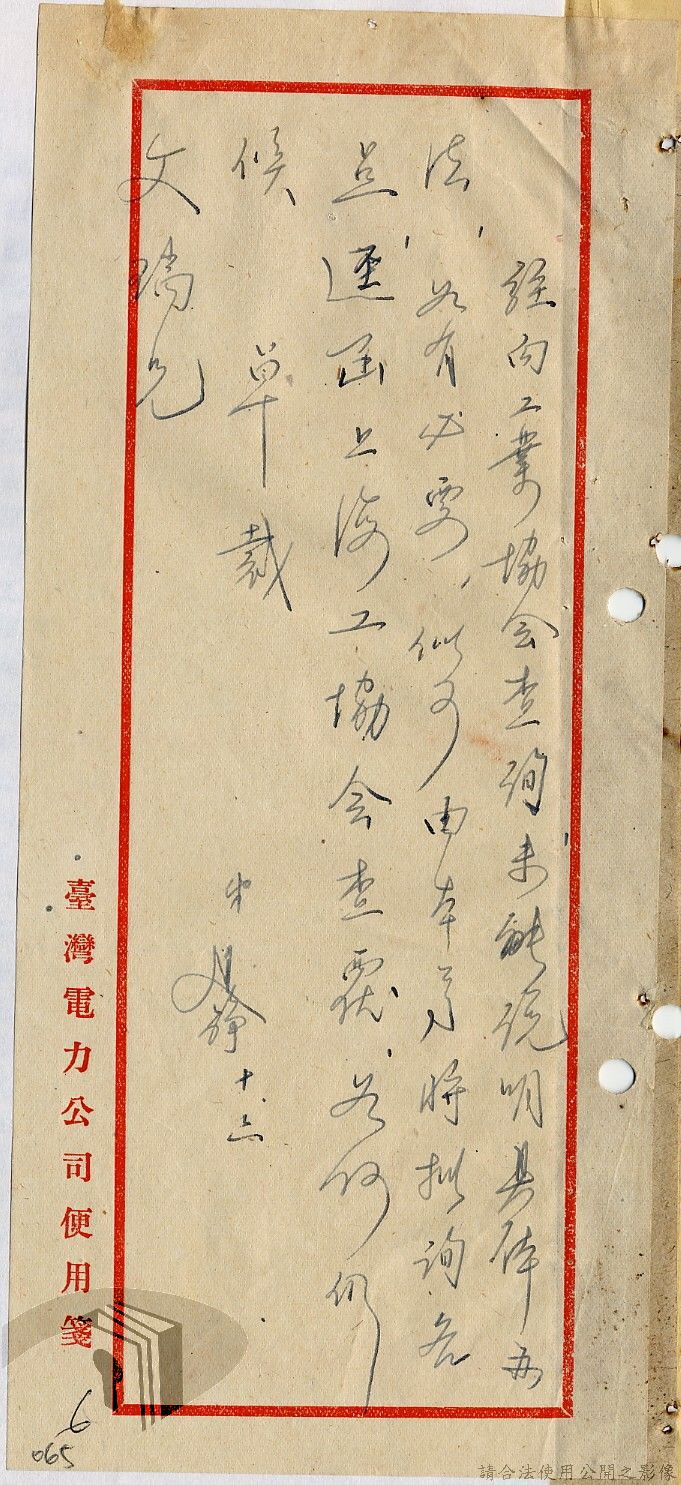 經向工業協会查詢，未能说明具体办
法，如有必要，似可由本司將拟詢各
点，逕函上海工協会查覆，如何仍
候 卓裁
文瑞兄
弟 十、六
臺灣電力公司便用箋
6
065
請合法使用公開之影像